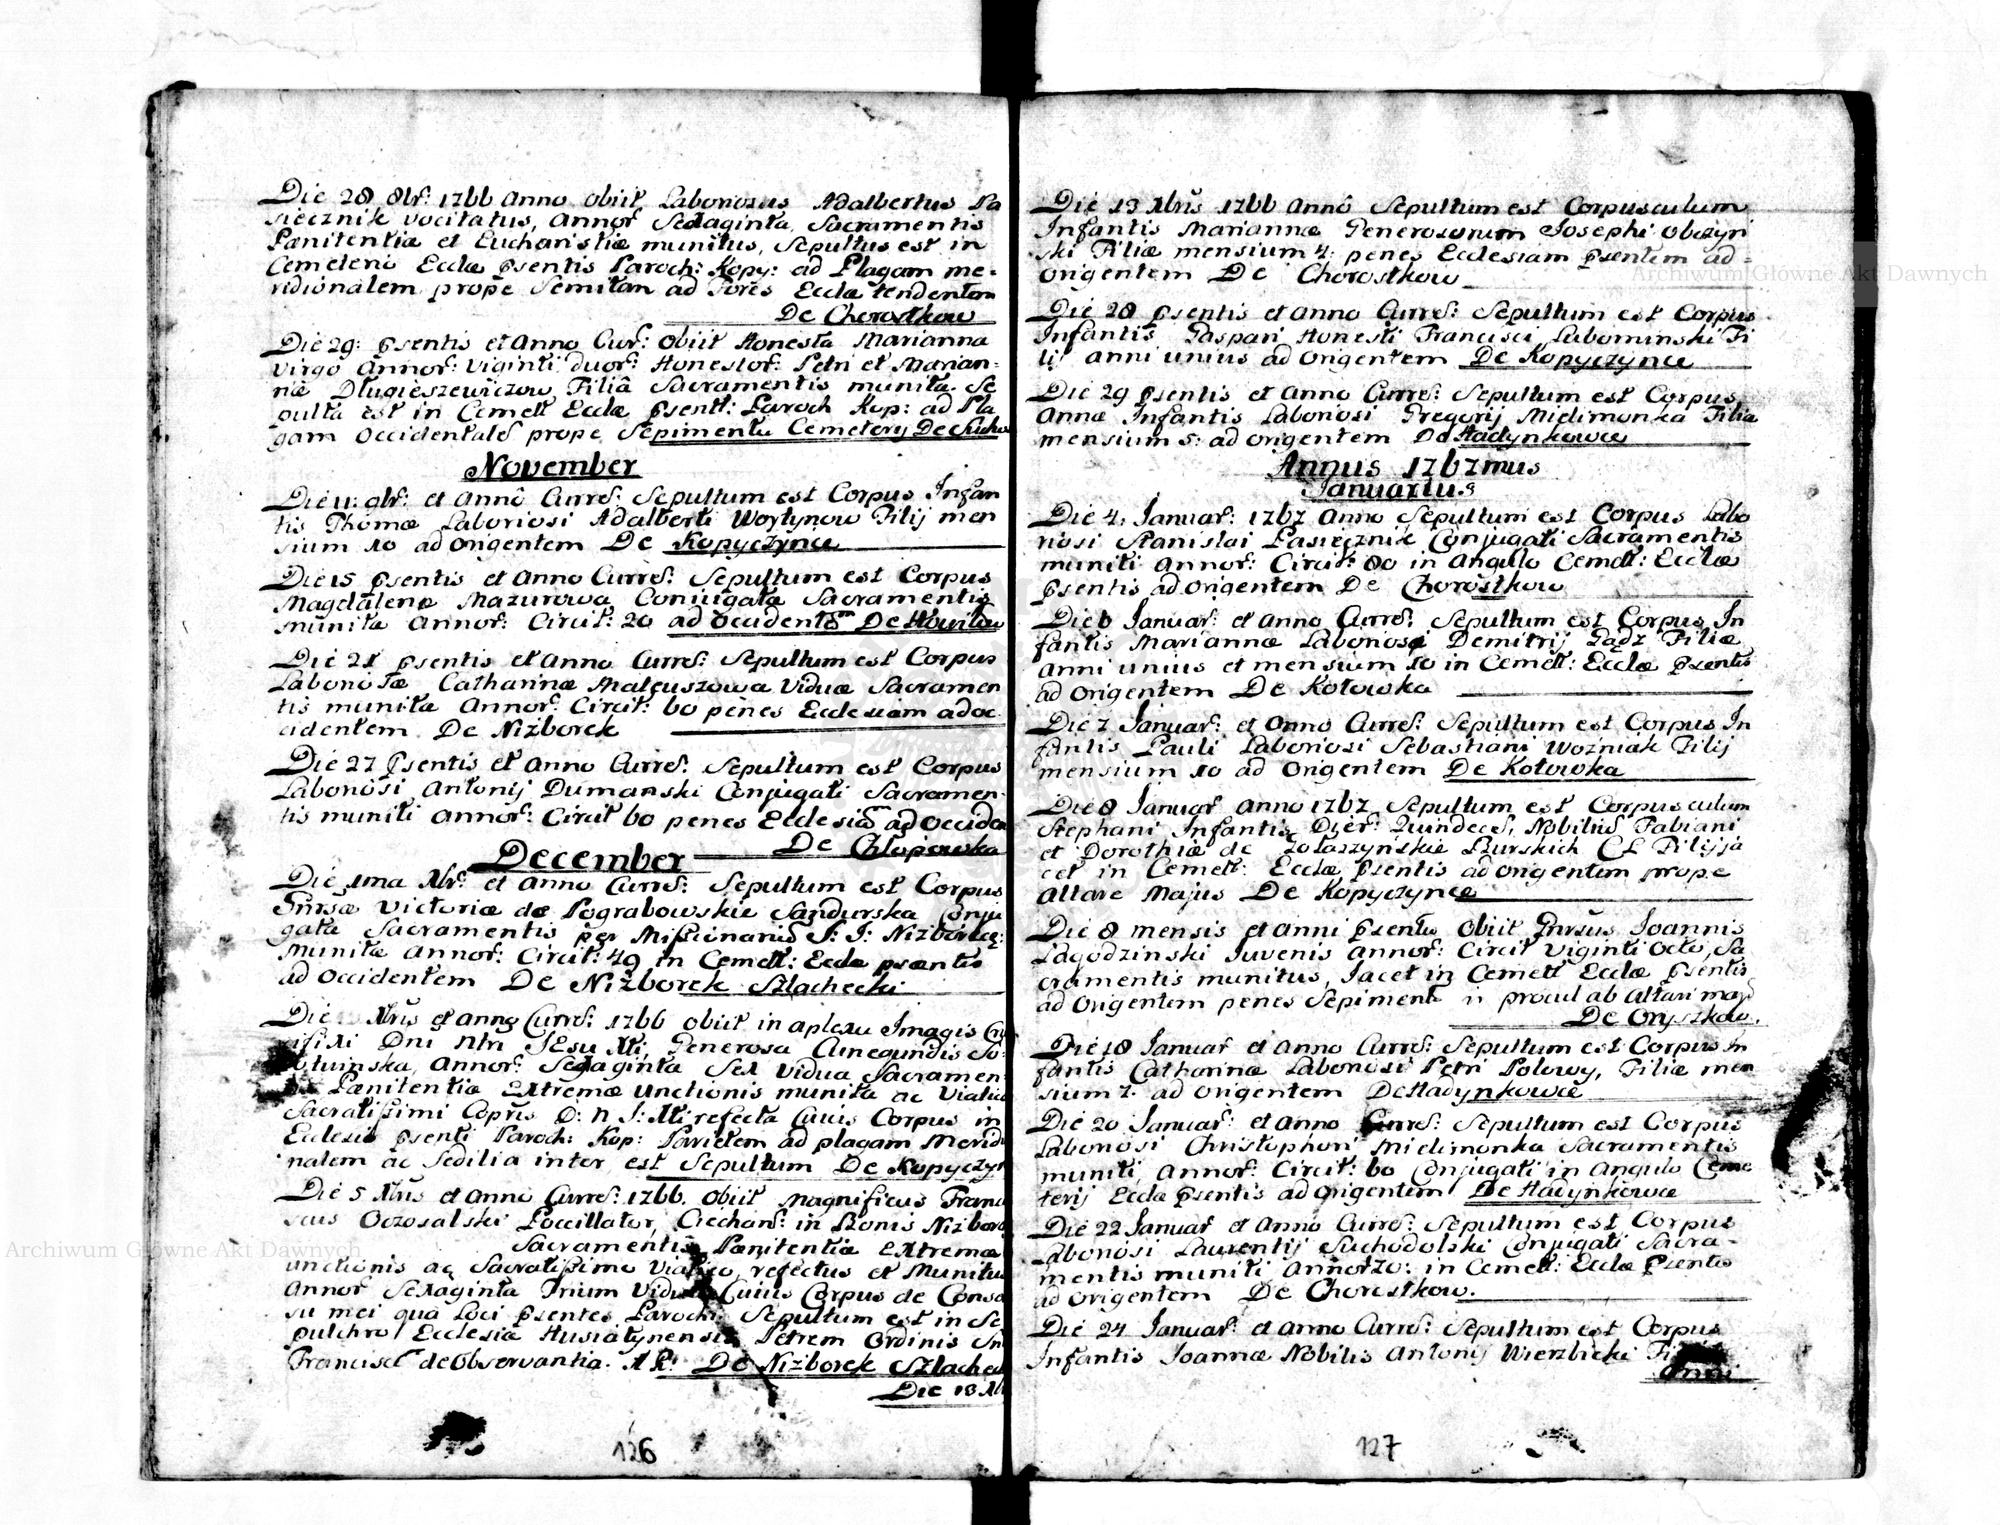 Die 28 8br: 1766 Anno obiit Laboriosus Adalbertus Pa
siecznik vocitatus, Annor: Sexaginta, Sacramentis
Pænitentiæ et Eucharistiæ munitus, Sepultus est in
Cemeterio Ecclæ psentis Paroch: Kopy: ad Plagam me-
ridionalem prope Semitam ad Fores Ecclæ tendentem
De Chorostkow
Die 29: psentis et Anno Curr: obiit Honesta Marianna
Virgo Annor: Viginti duor: Honestor: Petri et Marian-
næ Długieszewiczow Filia Sacramentis munita. Se
pulta est in Cemett Ecclæ psentt: Paroch Kop: ad Pla
gam Occidentale prope Sepimenta Cemeterij De
November
Die 11: 9br: et Anno Curre: Sepultum est Corpus Infan
tis Thomæ Laboriosi Adalberti Woytynow Filij men
sium 10 ad origentem De Kopyczynce
Die 15 psentis et Anno Curre: Sepultum est Corpus
Magdalenæ Mazurowa Conjugatæ Sacramentis
munitæ Annor: Circit: 20 ad occidentem De
Die 21 psentis et Anno Curre: Sepultum est Corpus
Laboriosæ Catharinæ Mateuszowa Viduæ Sacramen
tis munitæ Annor: Circit: 60 penes Ecclesiam ad oc
cidentem De Niżborek
Die 27 psentis et Anno Curre: Sepultum est Corpus
Laboriosi Antonij Dumanski Conjugati Sacramen-
tis muniti Annor: Circit 60 penes Ecclesia ad Occiden
De Chlopowka
December
Die 1ma Xbr: et Anno Curre: Sepultum est Corpus
Gnrsæ Victoriæ de Pograbowskie Sandurska Conju
gata Sacramentis per Missionario S: J: Niżborce:
Munita Annor: Circit: 49 in Cemett: Eccla psentis
ad Occidentem De Niżborek Szlachecki
Die Xbris et anno Curre: 1766 obiit in aplexu Imagis Cru
ifixi Dni Ntri JEsu Xti, Generosa Cunegundis So-
Annor: Sexaginta Sex Vidua Sacramen-
Pænitentiæ Extremæ Unctionis munita ac Viatico
Sacratissimi Copris D: N J: Xti refecta Cuius Corpus in
Ecclesia psenti Paroch: Kop: Parietem ad plagam Merid
nalem ac Sedilia inter est Sepultum De Kopyczyn
Die 5 Xbris et anno Curre: 1766. obiit Magnificus Franci
scus Oczosalski Poccillator, Ciechan: in Bonis Niżborg
Sacramentis Pænitentiæ Extremæ
unctionis ac Sacratissimo Viatico refectus et Munitus
Annor Sexaginta Trium Viduus Cuius Corpus de Conse
su mei qua Loci psentes Parochi Sepultum est in Se
pulchro Ecclesiæ Husiatynensis Petrem Ordinis Sni
Francisci de Observantia. De Niżborek Szlacheck
Die 13 Xb
126
Die 13 Xbris 1766 Anno Sepultum est Corpusculum
Infantis Mariannæ Generosorum Josephi Obczyń
ski Filiæ mensium 4: penes Ecclesiam psentem ad-
origentem De Chorostkow
Die 28 psentis et Anno Curre: Sepultum est Corpus
Infantis, Gaspari Honesti Francisci Lubominski Fi
lij anni unius ad origentem De Kopyczynce
Die 29 psentis et Anno Curre: Sepultum est Corpus
Annæ Infantis Laboriosi Gregorij Mielimonka Filiæ
mensium 5: ad origentem De Hadynkowce
Annus 1767mus
Januarius
Die 4. Januar: 1767 Anno Sepultum est Corpus Labo
riosi Stanislai Pasiecznik Conjugati Sacramentis
muniti Annor: Circit: 80 in Angulo Cemett: Ecclæ
psentis ad origentem De Chorostkow
Die 6 Januar: et Anno Curre: Sepultum est Corpus In
fantis Mariannæ Laboriosi Demitrij Gadz Filiæ
Anni unius et mensium 10 in Cemett: Ecclæ psentis
ad origentem De Kotowka
Die 7 Januar: et Anno Curre: Sepultum est Corpus In
fantis Pauli Laboriosi Sebastiani Wozniak Filij
mensium 10 ad Origentem De Kotowka
Die 8 Januar Anno 1767 Sepultum est Corpusculum
Stephani Infantis Dier: Quindeci, Nobiliu Fabiani
et Dorothiæ de Filij ja
cet in Cemett: Ecclæ psentis ad origentem prope
Altare Majus De Kopyczynce
Die 8 mensis et anni psentis obiit Gnrsus Joannis
Łagodzinski Juvenis annor: Circit Viginti Octo, Sa
cramentis munitus, Jacet in Cemett Ecclæ psentis
ad Origentem penes Sepimenta n procul ab Altari maj
De Oryszkow.
Die 18 Januar et Anno Curre: Sepultum est Corpus In
fantis Catharinæ Laboriosi Petri Polowy, Filiæ men
sium 7. ad origentem De Hadynkowce
Die 20 Januar: et Anno Curre: Sepultum est Corpus
Laboriosi Christophori Mielimonka Sacramentis
muniti, Annor: Circit: 60 Conjugati in Angulo Ceme
terij Ecclæ psentis ad origentem De Hadynkowce
Die 22 Januar et Anno Curre: Sepultum est Corpus
Laboriosi Laurentij Suchodolski Conjugati Sacra-
mentis muniti Annor 70: in Cemett: Ecclæ Psentis
ad Origentem De Chorostkow.
Die 24 Januar: et Anno Curre: Sepultum est Corpus
Infantis Joannæ Nobilis Antonij Wierzbicki
Anni
127
Archiwum Główne Akt Dawnych
Archiwum Główne Akt Dawnych